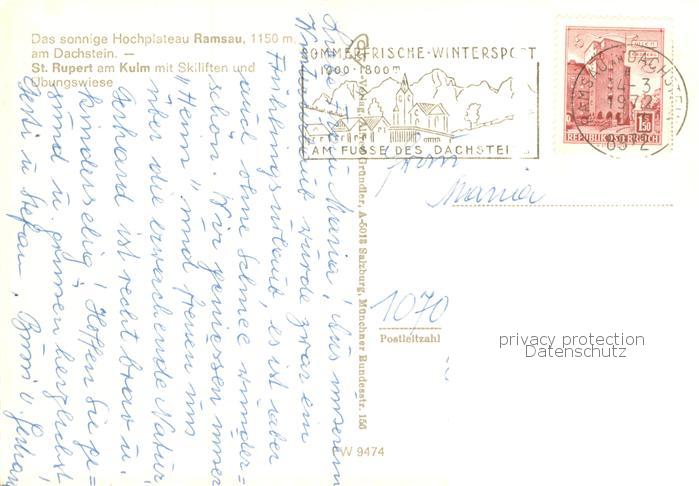 Das sonnige Hochplateau Ramsau, 1150 m,
am Dachstein. —
St. Rupert am Kulm mit Skiliften und
Übungswiese
SOMMERFRISCHE-WINTERSPORT
1000-1800m
AM FUSSE DES DACHSTEI
RAMSAU AM DACHSTEIN
14-3
1972
REPUBLIK ÖSTERREICH
1.50
Frau
Maria
1070
Postleitzahl
privacy protection
Datenschutz
Gründler, A-5013 Salzburg, Münchner Bundesstr. 156
W 9474
Liebe Frau Maria, Aus unserem
Winterurlaub wurde zwar ein
Frühlingsurlaub, es ist aber
auch ohne Schnee wunder-
schön. Wir geniessen unser
"Heim" und freuen uns
über die erwachende Natur,
Gerhard ist recht brav u.
kinderselig! Hoffen Sie ge-
sund u. grüssen herzlichst
u. Stefan,